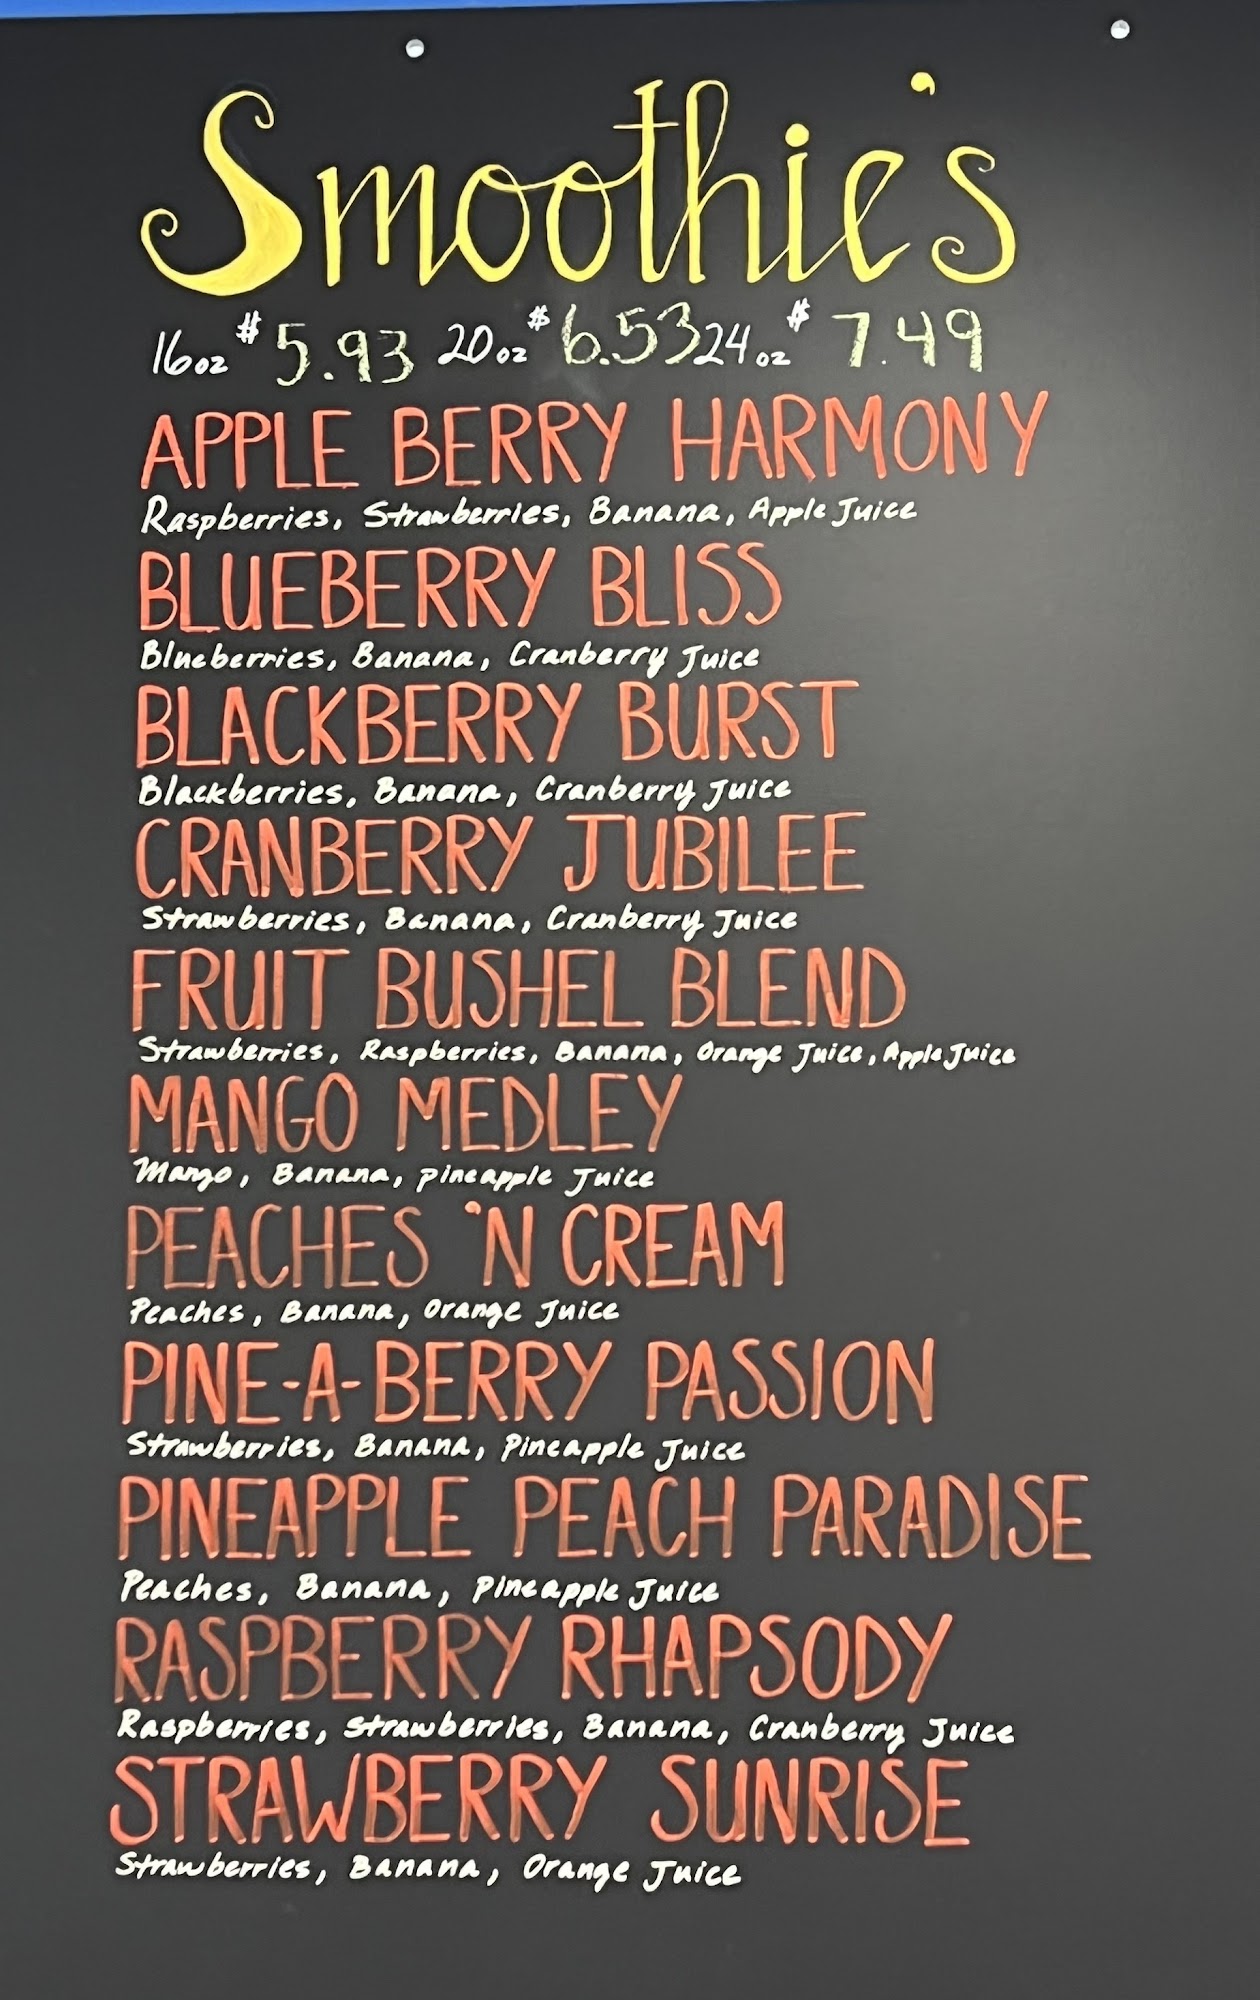 Smoothie's
16oz $5.93 20oz $6.53 24oz $7.49
APPLE BERRY HARMONY
Raspberries, Strawberries, Banana, Apple Juice
BLUEBERRY BLISS
Blueberries, Banana, Cranberry Juice
BLACKBERRY BURST
Blackberries, Banana, Cranberry Juice
CRANBERRY JUBILEE
Strawberries, Banana, Cranberry Juice
FRUIT BUSHEL BLEND
Strawberries, Raspberries, Banana, Orange Juice, Apple Juice
MANGO MEDLEY
Mango, Banana, Pineapple Juice
PEACHES 'N CREAM
Peaches, Banana, Orange Juice
PINE-A-BERRY PASSION
Strawberries, Banana, Pineapple Juice
PINEAPPLE PEACH PARADISE
Peaches, Banana, Pineapple Juice
RASPBERRY RHAPSODY
Raspberries, Strawberries, Banana, Cranberry Juice
STRAWBERRY SUNRISE
Strawberries, Banana, Orange Juice